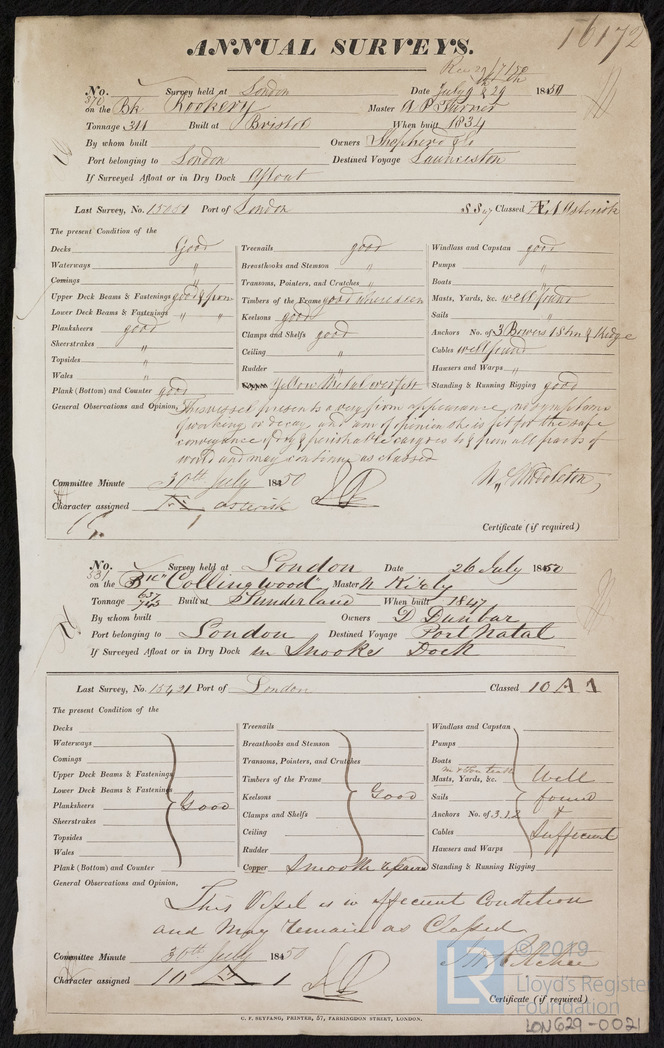 16172
ANNUAL SURVEYS.
No. Survey held at London Date July 9 & 29 1850
370 on the Bk Rookery Master
Tonnage 311 Built at Bristol When built 1834
By whom built Owners Shepherd & Co
Port belonging to London Destined Voyage Launceston
If Surveyed Afloat or in Dry Dock Afloat
Last Survey, No. 15051 Port of London 8 8 47 Classed Æ 1 Asterisk
The present Condition of the
Decks Good Treenails good Windlass and Capstan good
Waterways " Breasthooks and Stemson " Pumps "
Comings " Transoms, Pointers, and Crutches " Boats "
Upper Deck Beams & Fastenings good & firm Timbers of the Frame good where seen Masts, Yards, &c. well found
Lower Deck Beams & Fastenings " " Keelsons good Sails "
Planksheers good Clamps and Shelfs good Anchors No. of 3 Bowers 1 Stm & 1 Kedge
Sheerstrakes " Ceiling " Cables well found
Topsides " Rudder " Hawsers and Warps "
Wales " Yellow Metal over felt
Plank (Bottom) and Counter good Standing & Running Rigging good
General Observations and Opinion, This vessel presents a very firm appearance, no symptoms
of working or decay, and am of opinion she is fit for the safe
conveyance of dry & perishable cargoes to & from all parts of
world and may continue as classed
W. Middleton,
Committee Minute 30th July 1850
Character assigned Æ 1 asterisk
Certificate (if required)
No. Survey held at London Date 26 July 1850
381 on the Bk "Collingwood" Master Kirby
Tonnage 637/743 Built at Sunderland When built 1847
By whom built Owners D Dunbar
Port belonging to London Destined Voyage Port Natal
If Surveyed Afloat or in Dry Dock in Snooks Dock
Last Survey, No. 15421 Port of London Classed 10 A 1
The present Condition of the
Decks Treenails Windlass and Capstan
Waterways Breasthooks and Stemson Pumps
Comings Transoms, Pointers, and Crutches Boats
Upper Deck Beams & Fastenings Timbers of the Frame Masts, Yards, &c. Well
Lower Deck Beams & Fastenings Good Keelsons Good Sails found
Planksheers Clamps and Shelfs Anchors No. of 3.1.2 &
Sheerstrakes Ceiling Cables Sufficient
Topsides Rudder Hawsers and Warps
Wales Copper Smooth
Plank (Bottom) and Counter Standing & Running Rigging
General Observations and Opinion,
This Vessel is in efficient Condition
and may remain as Classed
Committee Minute 30th July 1850
Character assigned 10 A 1
Certificate (if required)
C. F. SEYFANG, PRINTER, 57, FARRINGDON STREET, LONDON.
LR © 2019
Lloyd's Register
Foundation
LON629-0021